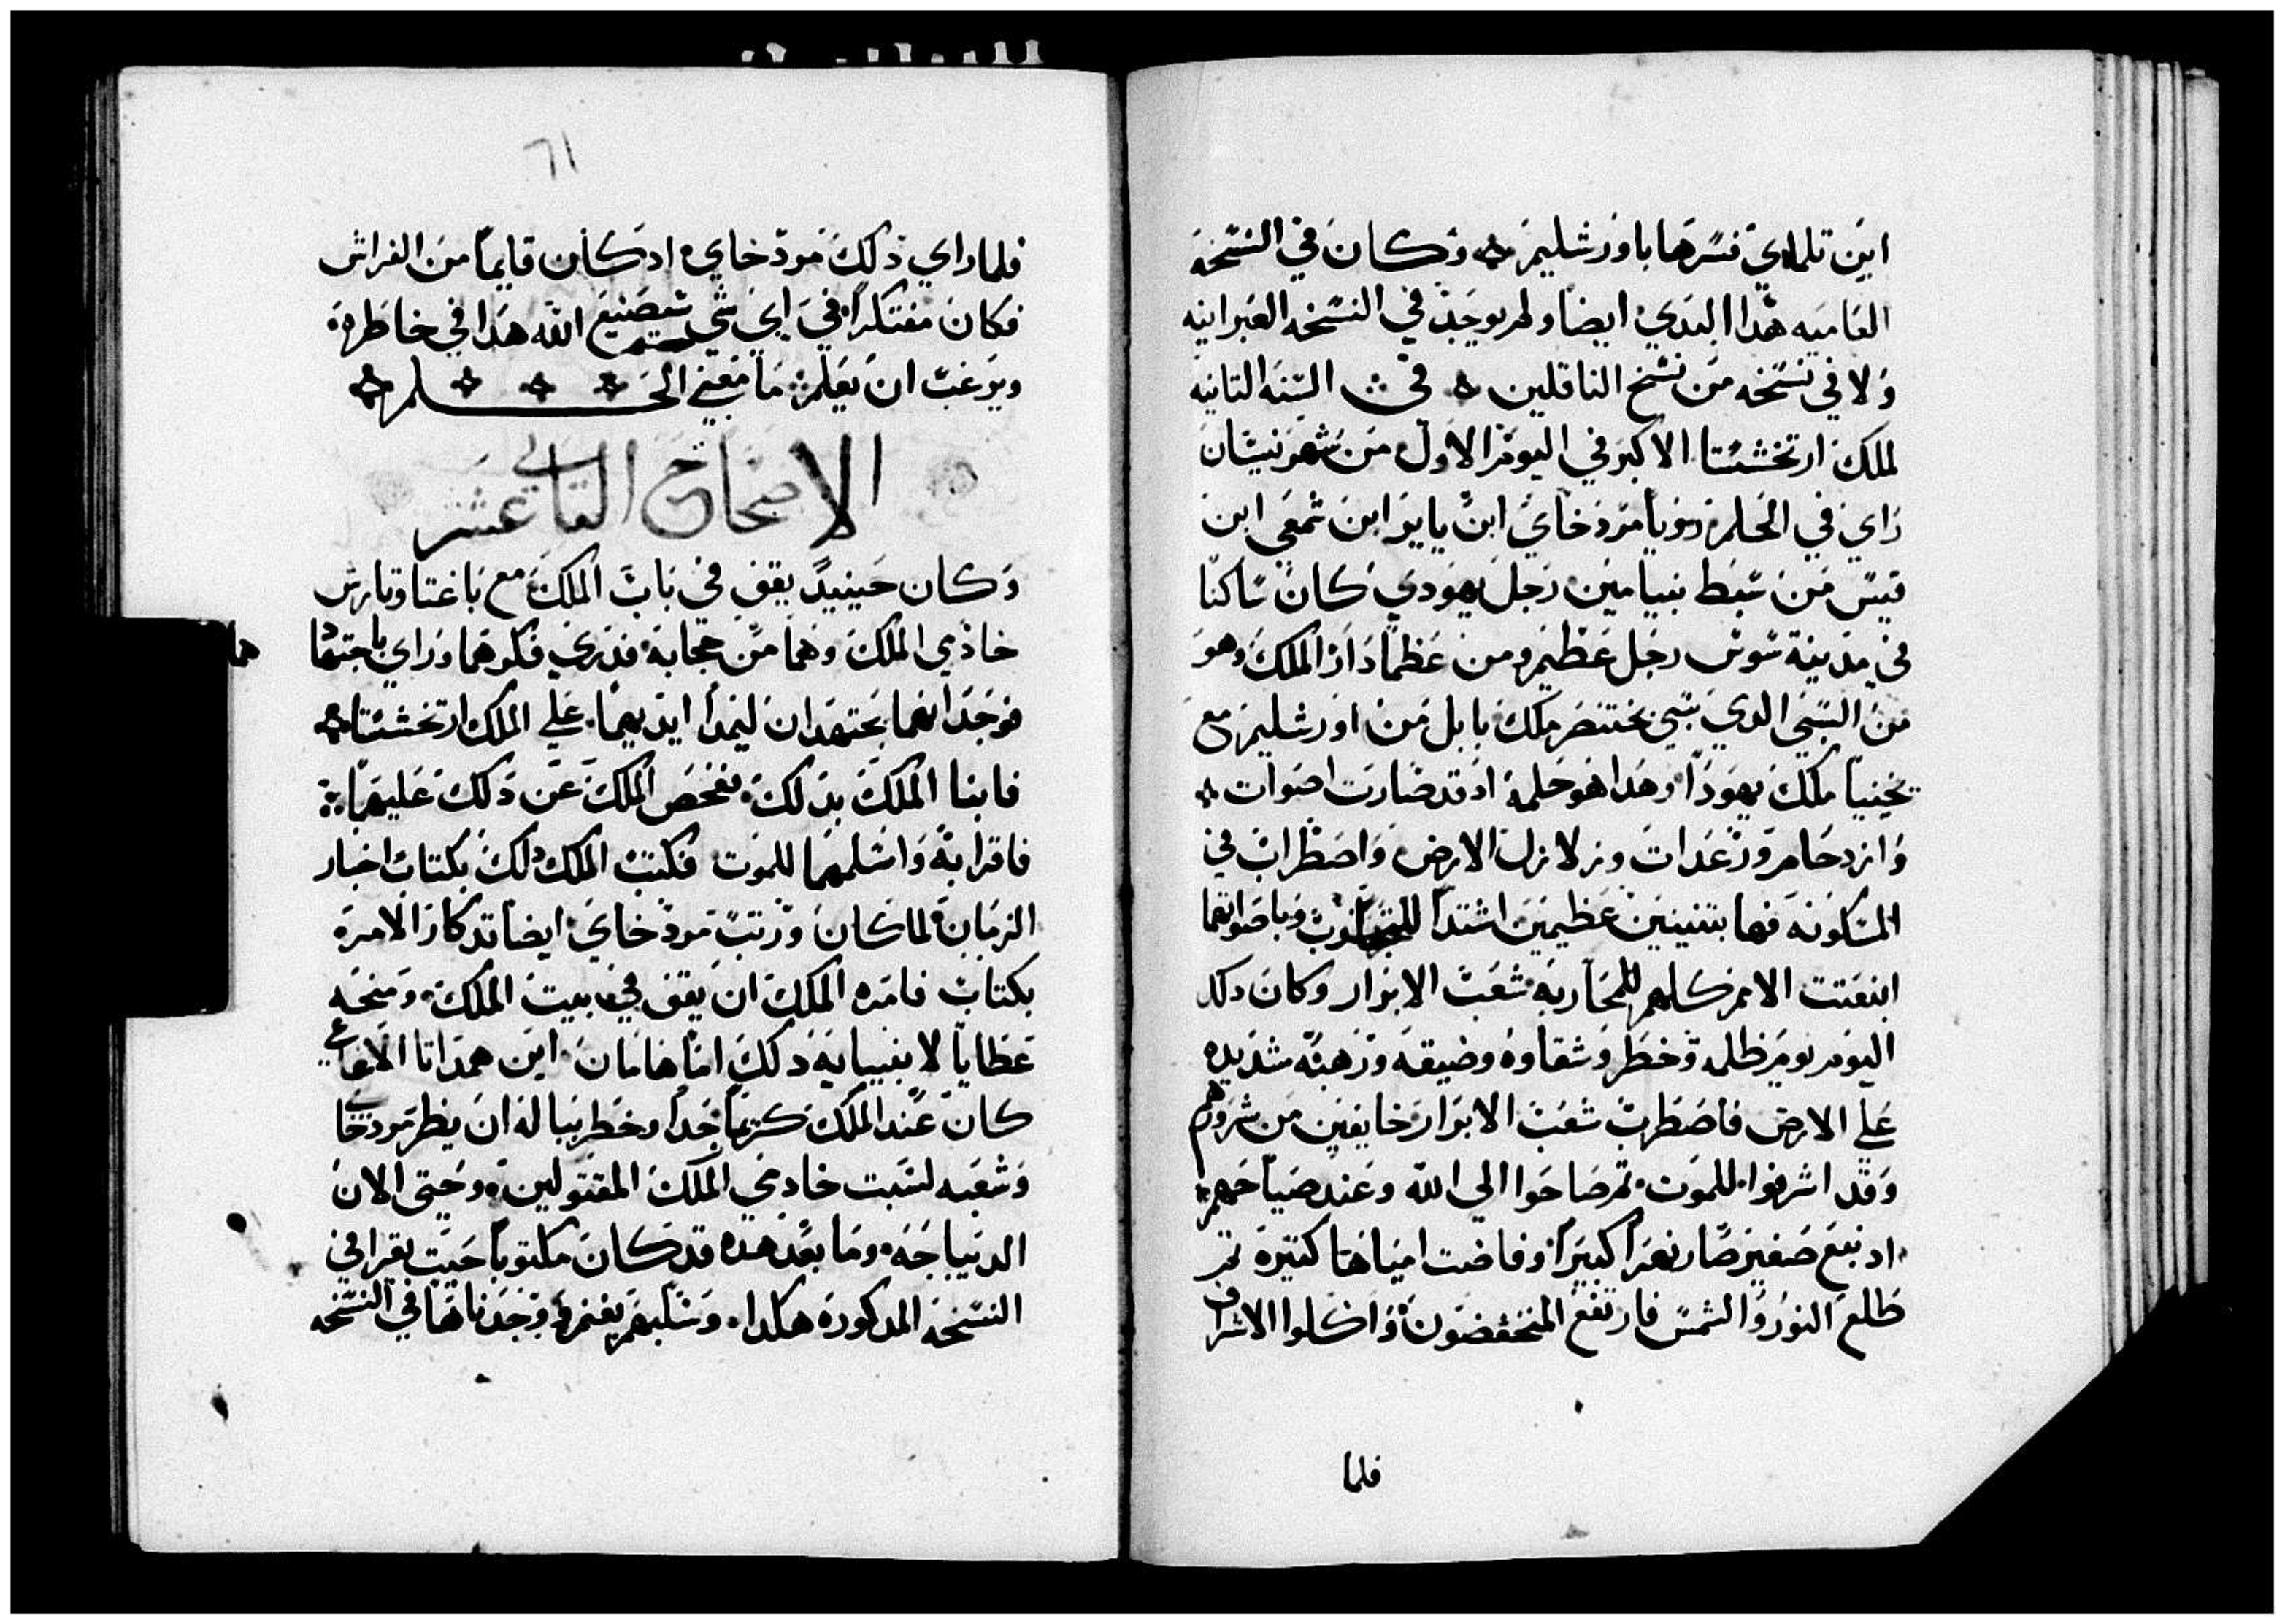 ابن تلماي فسرها باورشليم وكان في النسخه
العاميه هذا البدي ايضا ولم يوجد في النسخه العبرانيه
ولا في نسخه من نسخ الناقلين في السنه التانيه
لملك ارتخشستا الاكبر في اليوم الاول من شهر نيسان
راي في الحلم رويا مردخاي ابن يايو ابن شمعي ابن
قيس من سبط بنيامين رجل يهودي كان ساكنا
في مدينة سوس رجل عظيم ومن عظما دار الملك وهو
من السبي الدي سبي بختنصر ملك بابل من اورشليم مع
يخنيا ملك يهودا وهدا هو حلمه اد قد صارت اصوات
وازدحام ورعدات وزلازل الارض واضطراب في
المسكونه فها بتنينين عظيمين اشتدا وباصواتهما
انبعتت الامم كلهم للمحاربه شعب الابرار وكان دلك
اليوم يوم ظلمه وخطر وشقاوه وضيقه ورهبه شديده
علي الارض فاضطرب شعب الابرار خايفين من شرورهم
وقد اشرفوا للموت تم صاحوا الي الله وعند صياحهم
اد نبع صغير صار نهرا كبيرا وفاضت امياها كتيرة تم
طلع النور والشمس فارتفع المنخفضون واكلوا الاشراف
فلما
٦١
فلما راي دلك مردخاي اد كان قايما من الفراش
فكان مفتكرا في اي شي سيصنع الله هدا في خاطره
ويرغب ان يعلم ما معني الحلم
الاصحاح التاني عشر
وكان حينيد يقف في باب الملك مع باغتا وتارش
خادمي الملك وهما من حجابه فدري فكرهما وراي باجتهادهما
فوجد انهما يجتهدان ليمدا ايديهما علي الملك ارتخشستا
فابنا الملك بدلك ففحص الملك عن دلك عليهما
فاقرا به واسلمهما للموت فكتب الملك دلك بكتاب اخبار
الزمان لما كان ورتب مردخاي ايضا تدكار الامره
بكتاب فامره الملك ان يقف في بيت الملك ومنحه
عطايا لانبيايه دلك اما هامان ابن همداتا الاغاغي
كان عند الملك كريما جدا وخطر بباله ان يضر مردخاي
وشعبه لسبت خادمي الملك المقتولين وحتي الان
الديباجه وما بعد هده قد كان مكتوبا حيت يقرا في
النسخه المدكوره هكدا وسلبهم يغنم وجدناها في النسخه